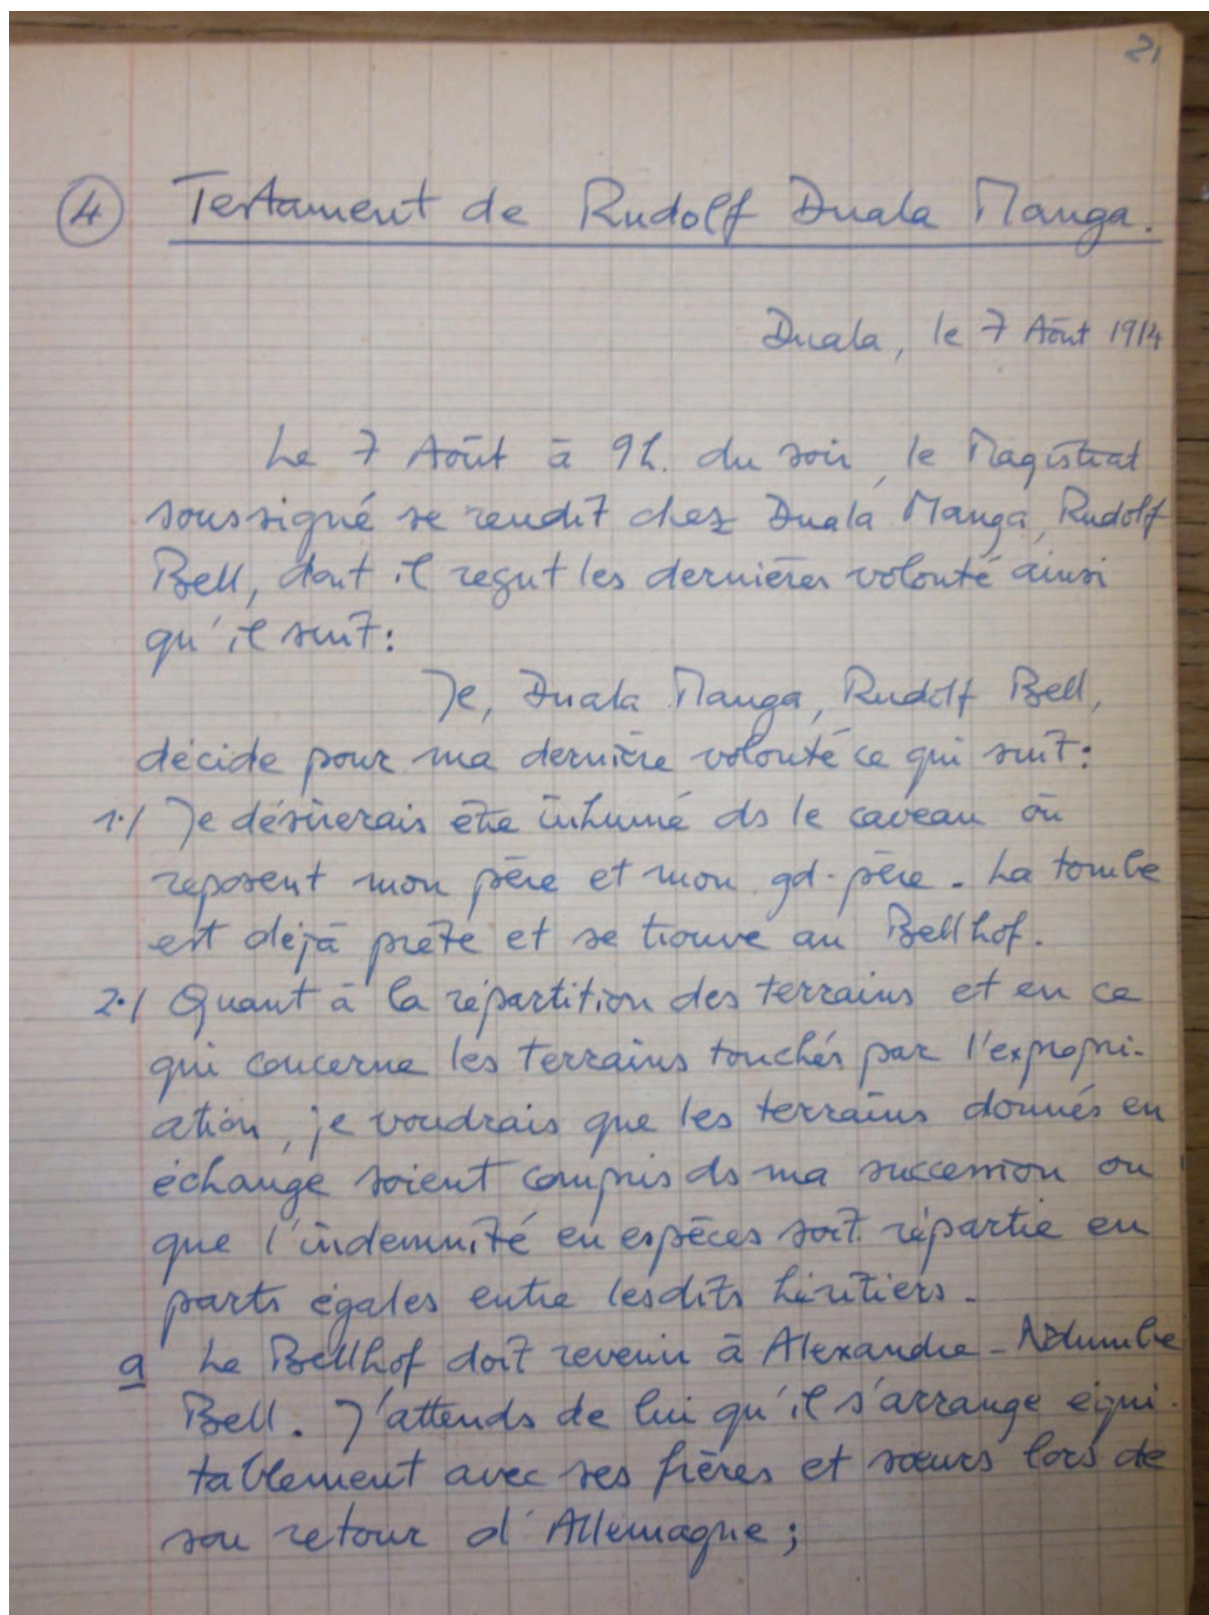 21
④ Testament de Rudolf Duala Manga.
Duala, le 7 Août 1914
Le 7 Août à 9h. du soir, le Magistrat
soussigné se rendit chez Duala Manga, Rudolf
Bell, dont il reçut les dernières volonté ainsi
qu'il suit:
Je, Duala Manga, Rudolf Bell,
décide pour ma dernière volonté ce qui suit:
1./ Je désirerais être inhumé ds le caveau où
reposent mon père et mon gd-père. La tombe
est déjà prête et se trouve au Bellhof.
2./ Quant à la répartition des terrains et en ce
qui concerne les terrains touchés par l'expropri-
ation, je voudrais que les terrains donnés en
échange soient compris ds ma succession ou
que l'indemnité en espèces soit répartie en
parts égales entre lesdits héritiers.
a Le Bellhof doit revenir à Alexandre-Ndumbe
Bell. J'attends de lui qu'il s'arrange équi-
tablement avec ses frères et sœurs lors de
son retour d'Allemagne;